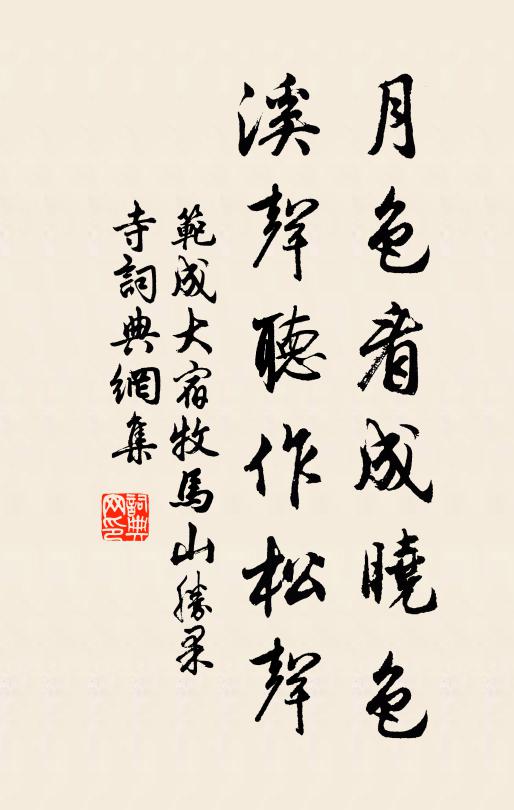 月色看成曉色
溪聲聽作松聲
範成大宿牧馬山勝果
寺詞典網集
詞典網印